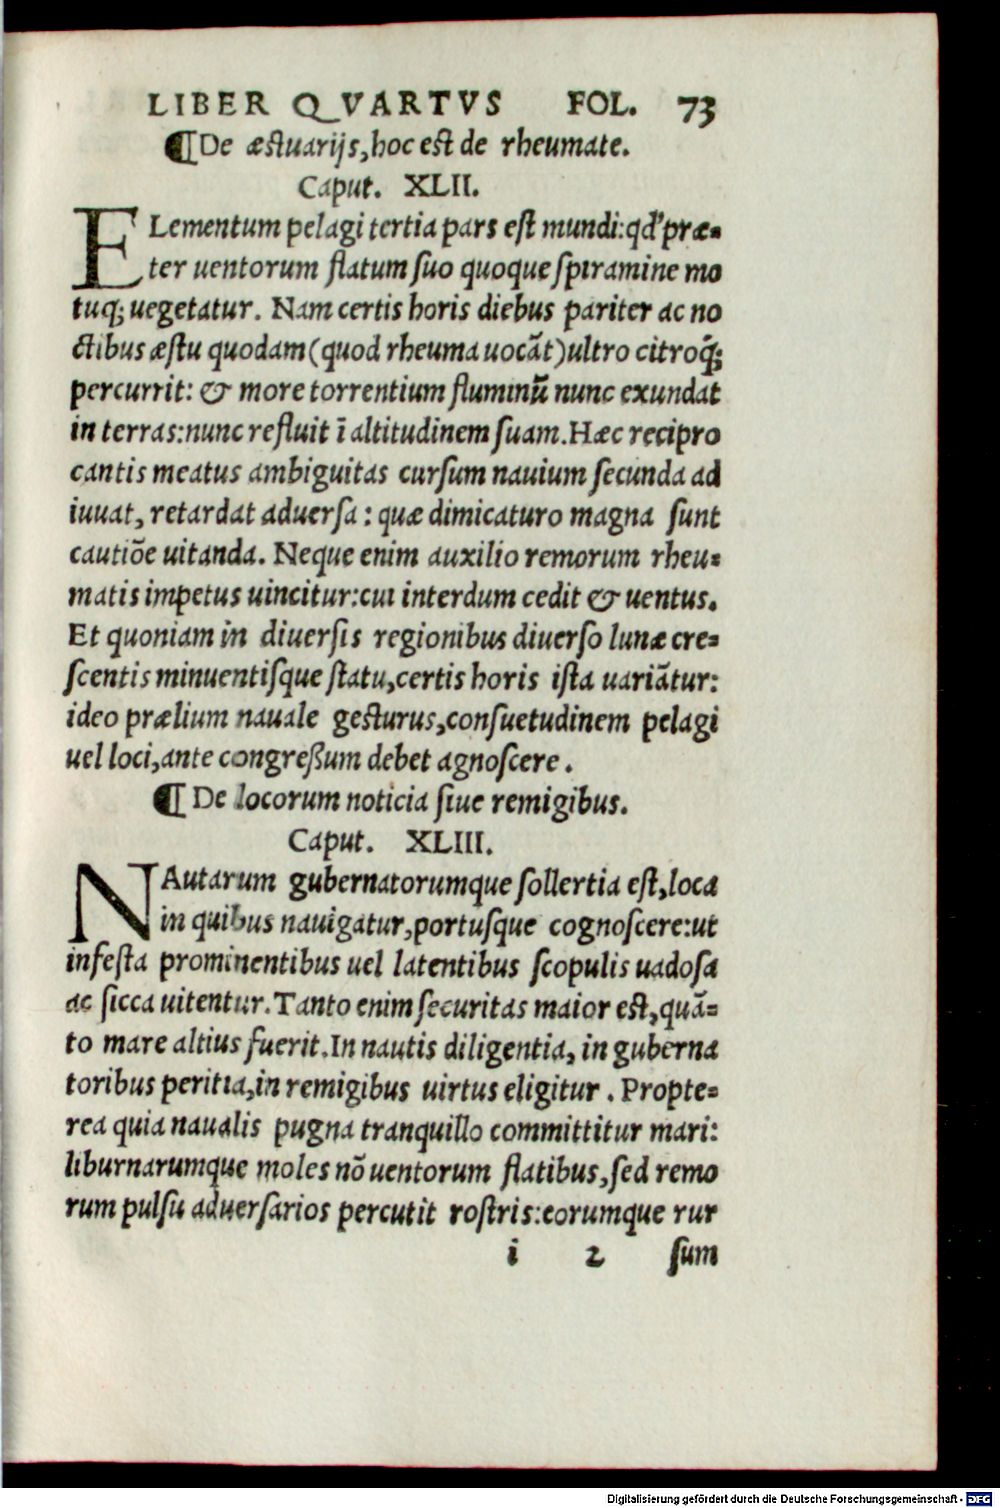 LIBER QVARTVS FOL. 73
¶De æstuarijs, hoc est de rheumate.
Caput. XLII.
ELementum pelagi tertia pars est mundi: qd' præ-
ter uentorum flatum suo quoque spiramine mo
tuq; uegetatur. Nam certis horis diebus pariter ac no
ctibus æstu quodam (quod rheuma uocāt) ultro citroq́;
percurrit: & more torrentium fluminū nunc exundat
in terras: nunc refluit ī altitudinem suam. Hæc recipro
cantis meatus ambiguitas cursum nauium secunda ad
iuuat, retardat aduersa: quæ dimicaturo magna sunt
cautiõe uitanda. Neque enim auxilio remorum rheu-
matis impetus uincitur: cui interdum cedit & uentus.
Et quoniam in diuersis regionibus diuerso lunæ cre-
scentis minuentisque statu, certis horis ista uariãtur:
ideo prælium nauale gesturus, consuetudinem pelagi
uel loci, ante congreßum debet agnoscere.
¶De locorum noticia siue remigibus.
Caput. XLIII.
NAutarum gubernatorumque sollertia est, loca
in quibus nauigatur, portusque cognoscere: ut
infesta prominentibus uel latentibus scopulis uadosa
ac sicca uitentur. Tanto enim securitas maior est, quã-
to mare altius fuerit. In nautis diligentia, in guberna
toribus peritia, in remigibus uirtus eligitur. Propte-
rea quia naualis pugna tranquillo committitur mari:
liburnarumque moles nõ uentorum flatibus, sed remo
rum pulsu aduersarios percutit rostris: eorumque rur
i 2 sum
Digitalisierung gefördert durch die Deutsche Forschungsgemeinschaft - DFG